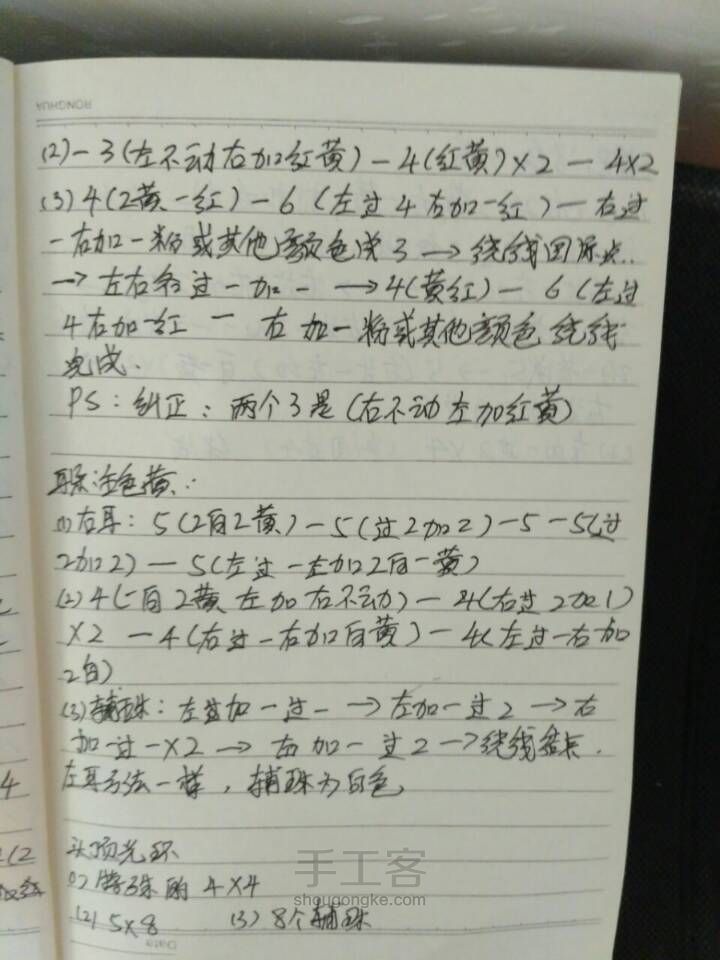 RONGHUA
(2)－3(左不动右加红黄)－4(红黄)×2－4×2
(3)4(2黄一红)－6(左过4右加一红)－右过
一右加一粉或其他颜色成3→绕线回原点.
→左右各过一加一→4(黄红)－6(左过
4右加一红－右加一粉或其他颜色绕线
完成.
PS:纠正:两个3是(右不动左加红黄)
耳朵:白色黄:
(1)右耳:5(2白2黄)－5(过2加2)－5－5(过
2加2)－5(左过一左加2白一黄)
(2)4(一白2黄左加右不动)－4(右过2加1)
×2－4(右过一右加白黄)－4(左过一右加
2白)
(3)辅珠:左加一过一→左加一过2→右
加一过一×2→右加一过2→绕线结长.
左耳方法一样,辅珠为白色
头顶光环
(1)特珠的4×4
(2)5×8 (3)8个辅珠
Date
手工客
shougongke.com
4